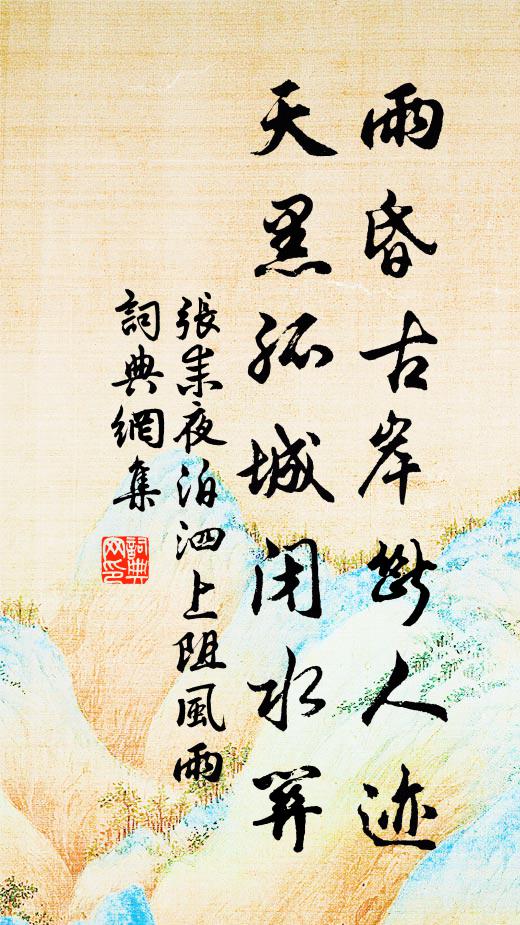 雨昏古岸斷人迹
天黑孤城闭水關
張耒夜泊泗上阻風雨
詞典網集
詞典网印